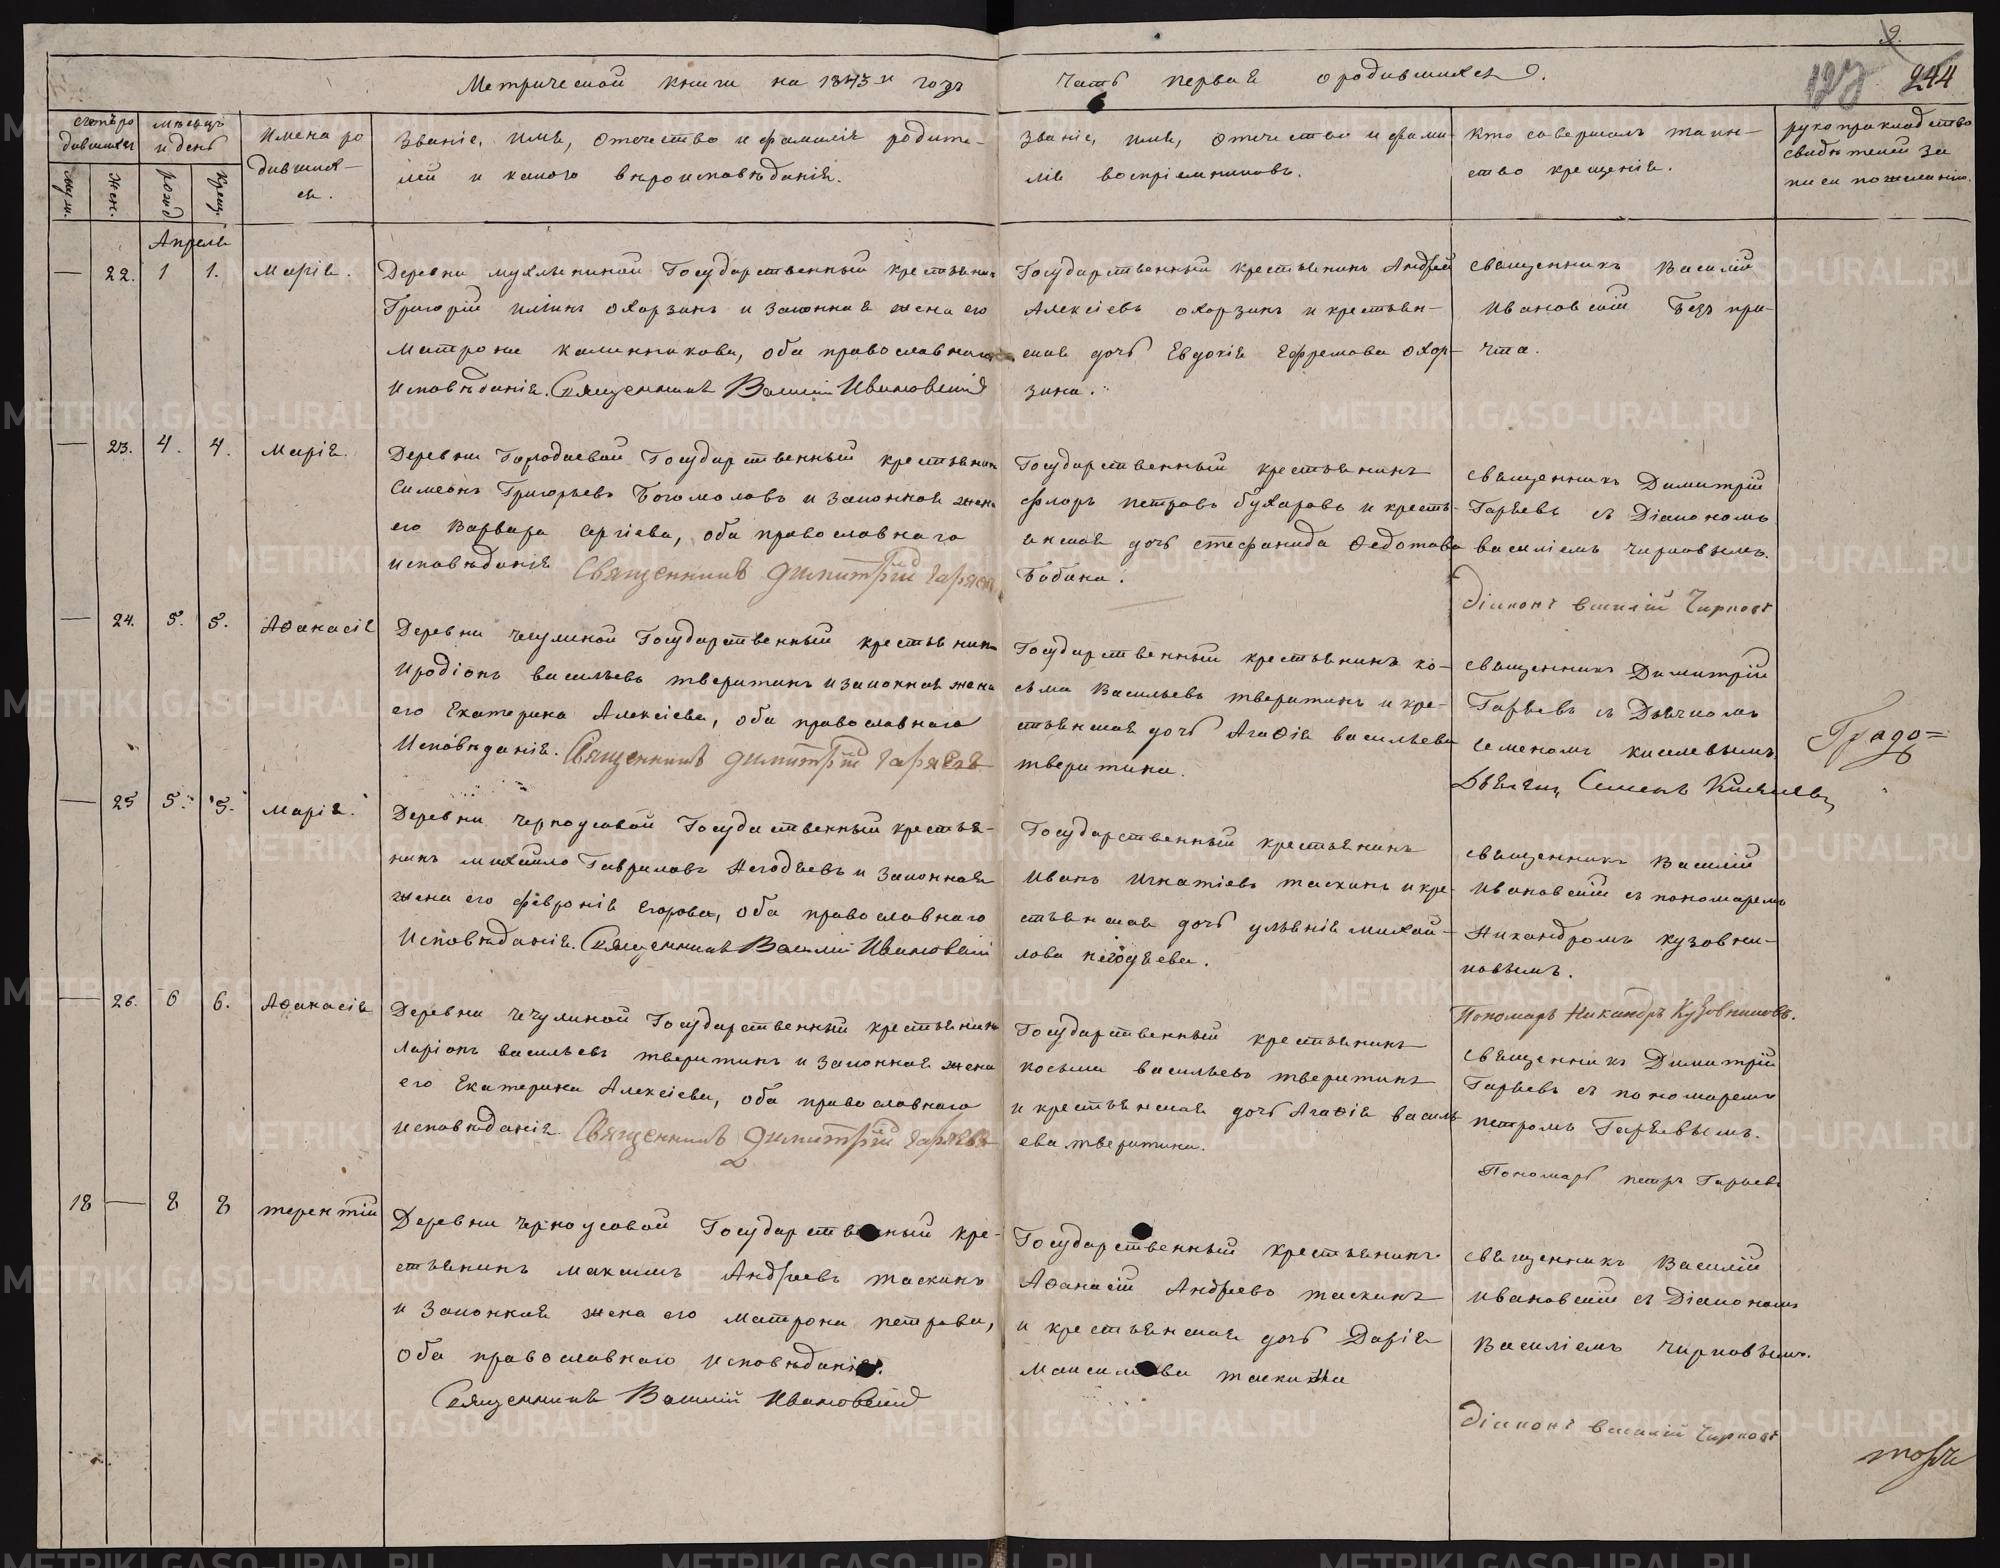 Метрической книги на 1843й годъ
часть первая о родившихся.
9.
127 244
счетъ ро
дившихся
мѣсяцъ
и день
Имена ро
дивших-
ся.
Званіе, имя, отчество и фамилія родите-
лей и какого вѣроисповѣданія.
Званіе, имя, отчество и фами-
лія воспріемниковъ.
Кто совершалъ таин-
ство крещенія.
рукоприкладство
свидѣтелей за
писи по желанію.
муж.
жен.
рожд
крещ.
Апрель
— 22. 1 1. Марія.
Деревни Государственный крестьянинъ
Григорій Ильинъ Охорзинъ и законная жена его
Матрона Калинникова, оба православнаго
исповѣданія. Священникъ Василій Ивановскій
Государственный крестьянинъ Андрей
Алексіевъ Охорзинъ и крестьян-
ская дочь Евдокія Ефремова Охор-
зина.
священникъ Василій
Ивановскій безъ при-
чта.
— 23. 4. 4. Марія.
Деревни Государственный крестьянинъ
Симеонъ Григорьевъ Богомоловъ и законная жена
его Варвара Сергіева, оба православнаго
исповѣданія Священникъ Димитрій Гаряевъ
Государственный крестьянинъ
Флоръ Петровъ Бухаровъ и кресть-
янская дочь Стефанида Федотова
Бабина.
священникъ Димитрій
Гаряевъ съ Діакономъ
Василіемъ Чирковымъ.
Діаконъ Василій Чирковъ
— 24. 5. 5. Аѳанасія
Деревни Чечулиной Государственный крестьянинъ
Иродіонъ Васильевъ Тверитинъ и законная жена
его Екатерина Алексіева, оба православнаго
Исповѣданія. Священникъ Димитрій Гаряевъ
Государственный крестьянинъ Ко-
сьма Васильевъ Тверитинъ и кре-
стьянская дочь Агафія Васильева
Тверитина.
священникъ Димитрій
Гаряевъ съ Дьячкомъ
Семеномъ Киселевымъ
Дьячекъ Семенъ Киселевъ
Градо=
— 25 5. 5. Марія.
Деревни Черноусовой Государственный крестья-
нинъ Михайло Гавриловъ Негодяевъ и законная
жена его Февронія Егорова, оба православнаго
Исповѣданія. Священникъ Василій Ивановскій
Государственный крестьянинъ
Иванъ Игнатіевъ Таскинъ и кре-
стьянская дочь Ульянія Михай-
лова Негодяева.
священникъ Василій
Ивановскій съ пономаремъ
Никандромъ Кузовни-
ковымъ.
Пономарь Никандръ Кузовниковъ.
— 26. 6 6. Аѳанасія
Деревни Чечулиной Государственный крестьянинъ
Ларіонъ Васильевъ Тверитинъ и законная жена
его Екатерина Алексіева, оба православнаго
исповѣданія. Священникъ Димитрій Гаряевъ
Государственный крестьянинъ
Косьма Васильевъ Тверитинъ
и крестьянская дочь Агафія Василь
ева Тверитина.
священникъ Димитрій
Гаряевъ съ пономаремъ
Петромъ Гаряевымъ.
Пономарь Петръ Гаряевъ
18 — 8 8 Терентій
Деревни Черноусовой Государственный кре-
стьянинъ Максимъ Андреевъ Таскинъ
и законная жена его Матрона Петрова,
оба православнаго исповѣданія.
Священникъ Василій Ивановскій
Государственный крестьянинъ
Аѳанасій Андреевъ Таскинъ
и крестьянская дочь Дарія
Максимова Таскина
священникъ Василій
Ивановскій съ Діакономъ
Василіемъ Чирковымъ.
Діаконъ Василій Чирковъ
METRIKI.GASO-URAL.RU